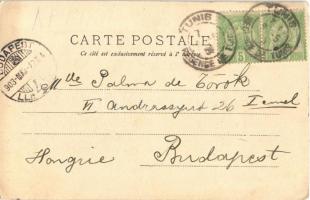 TUNIS
CARTE POSTALE
Ce côté est exclusivement réservé à l'
Mlle Palma de Török
VI Andrassyut 26 I emel
Hongrie Budapest